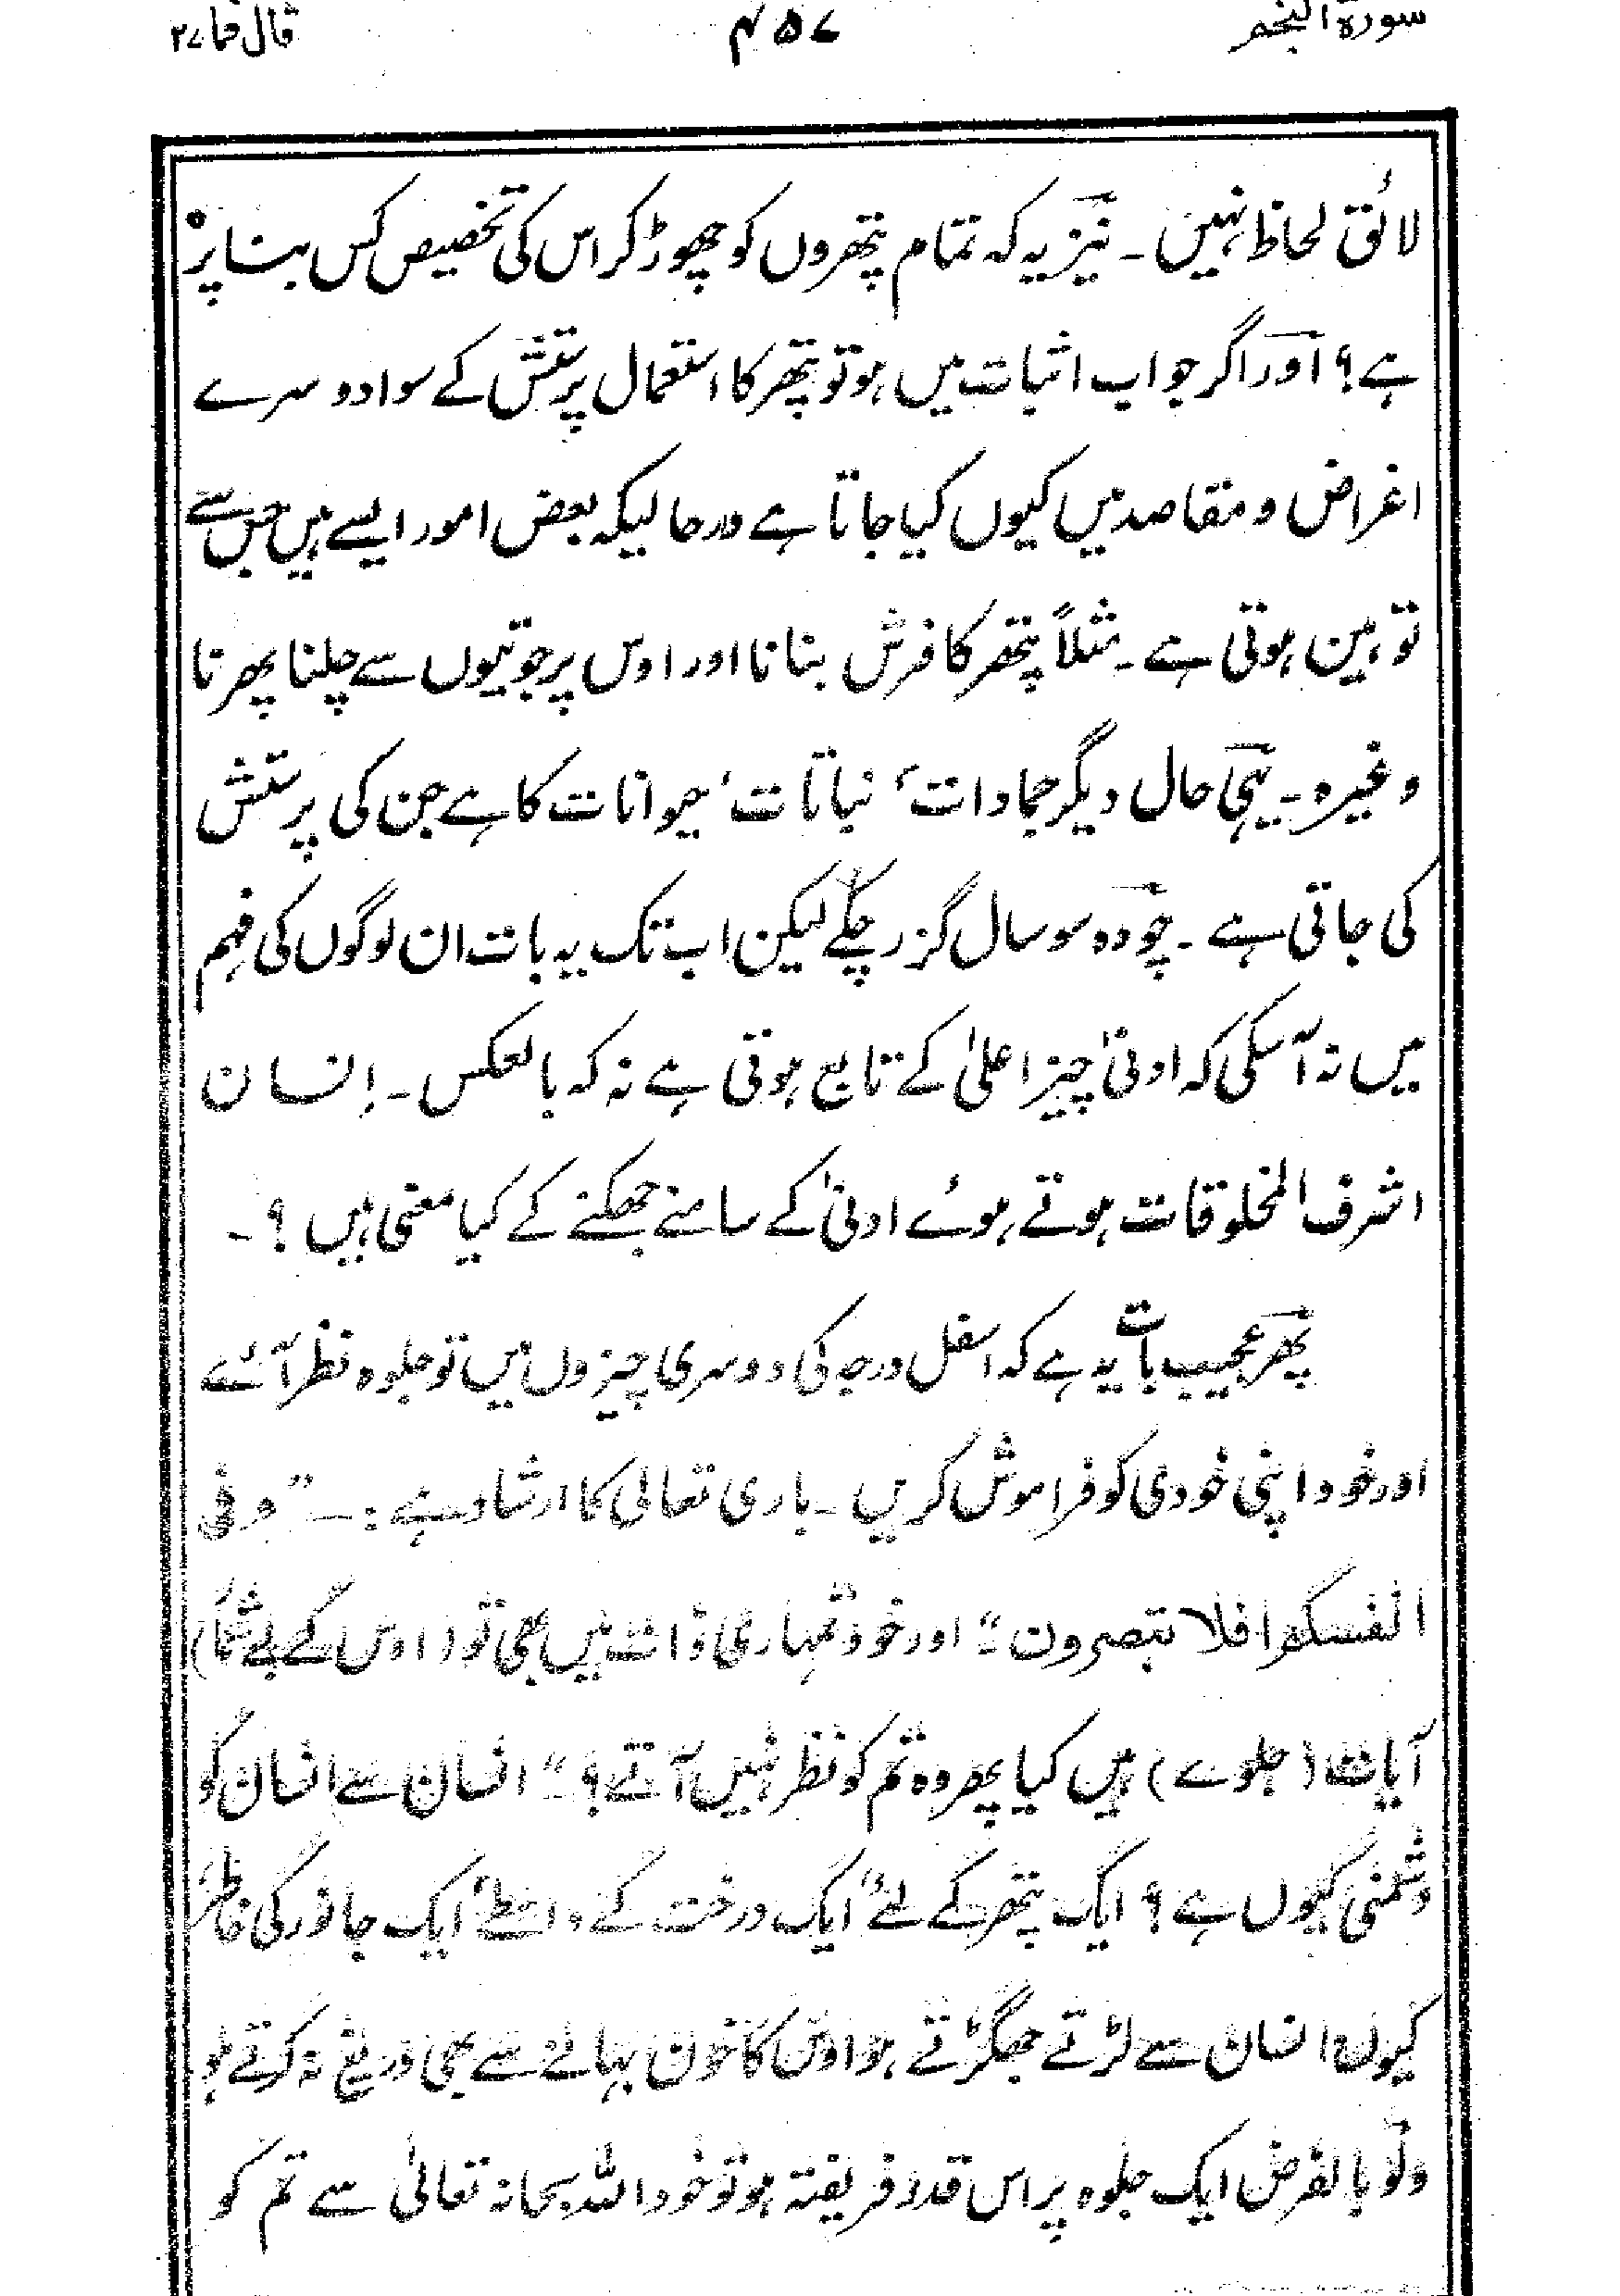 سورۃ النجم ۴۵۷ قال فما ۲۷
لائق لحاظ نہیں ۔ نیز یہ کہ تمام پتھروں کو چھوڑ کر اس کی تخصیص کس بنا پر
ہے ؟ اور اگر جواب اثبات میں ہو تو پتھر کا استعمال پرستش کے سوا دوسرے
اغراض و مقاصد میں کیوں کیا جاتا ہے درحالیکہ بعض امور ایسے ہیں جس سے
توہین ہوتی ہے ۔ مثلاً پتھر کا فرش بنانا اور اوس پر جوتیوں سے چلنا پھرنا
وغیرہ ۔ یہی حال دیگر جمادات ‘ نباتات ‘ حیوانات کا ہے جن کی پرستش
کی جاتی ہے ۔ چودہ سو سال گزر چکے لیکن اب تک یہ بات ان لوگوں کی فہم
میں نہ آسکی کہ ادنیٰ چیز اعلیٰ کے تابع ہوتی ہے نہ کہ بالعکس ۔ اِنسان
اشرف المخلوقات ہوتے ہوئے ادنیٰ کے سامنے جھکنے کے کیا معنی ہیں ؟ ۔
پھر عجیب بات یہ ہے کہ اسفل درجہ کی دوسری چیزوں میں تو جلوہ نظر آئے
اور خود اپنی خودی کو فراموش کریں ۔ باری تعالی کا ارشاد ہے : ۔ ” و فی
انفسکم افلا تبصرون “ اور خود تمہاری ذات میں بھی تو ( اوس کے بے شمار )
آیات ( جلوے ) ہیں کیا پھر وہ تم کو نظر نہیں آتے ؟ “ انسان سے انسان کو
دشمنی کیوں ہے ؟ ایک پتھر کے لئے ‘ ایک درخت کے واسطے ‘ ایک جانور کی خاطر
کیوں انسان سے لڑتے جھگڑتے ہو اوس کا خون بہانے سے بھی دریغ نہ کرتے ہو
ولو بالفرض ایک جلوہ پر اس قدر فریفتہ ہو تو خود اللہ سبحانہ تعالیٰ سے تم کو